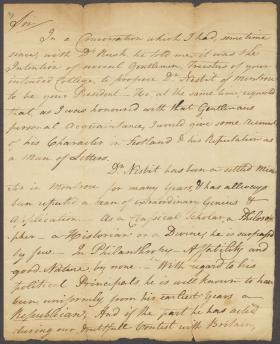 Sir
In a Conversation which I had, some time
since, with Dr. Rush, he told me, it was the
Intention of several Gentlemen, Trustees of your
intended College, to propose Dr. Nisbit of Montrose
to be your President. He at the same time, requested
that, as I was honoured with that Gentleman's
personal Acquaintance, I would give some Account
of his Character in Scotland & his Reputation as
a Man of Letters.
Dr. Nisbit has been a settled Minis-
ter in Montrose for many Years, & has allways
been reputed a Man of extraordinary Genius &
Application. As a Classical Scholar, a Philoso-
pher — a Historian or a Divine, he is surpassed
by few. In Philanthrophy — Affability and
good Nature, by none. With regard to his
Political Principals, he is well known to have
been uniformly from his earliest Years a
Republican; And if the part he has acted
during our doubtfull Contest with Britain,